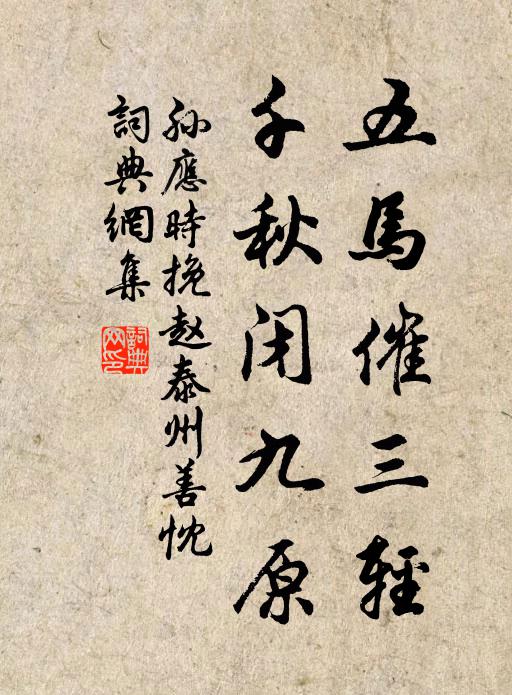 五馬催三輕
千秋閉九原
孫應時挽赵泰州善忱
詞典網集
詞典網印